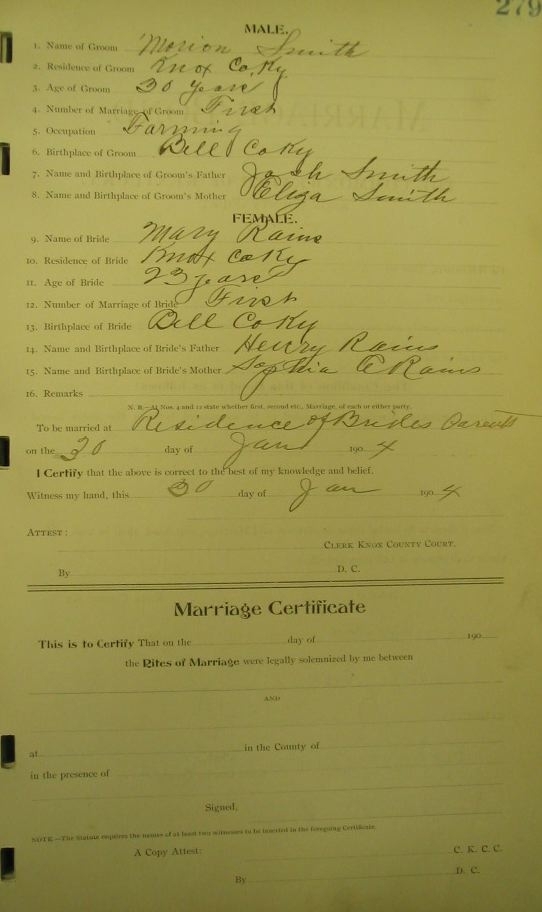 279
MALE.
1. Name of Groom Morion Smith
2. Residence of Groom Knox Co Ky
3. Age of Groom 30 years
4. Number of Marriage of Groom First
5. Occupation Farming
6. Birthplace of Groom Bell Co Ky
7. Name and Birthplace of Groom's Father Josh Smith
8. Name and Birthplace of Groom's Mother Eliza Smith
FEMALE.
9. Name of Bride Mary Rains
10. Residence of Bride Knox Co Ky
11. Age of Bride 23 years
12. Number of Marriage of Bride First
13. Birthplace of Bride Bell Co Ky
14. Name and Birthplace of Bride's Father Henry Rains
15. Name and Birthplace of Bride's Mother Sophia Rains
16. Remarks
N. B.—At Nos. 4 and 12 state whether first, second etc., Marriage, of each or either party.
To be married at Residence of Brides Parents
on the 30 day of Jan 190 4
I Certify that the above is correct to the best of my knowledge and belief.
Witness my hand, this 30 day of Jan 190 4
ATTEST:
CLERK KNOX COUNTY COURT.
By D. C.
Marriage Certificate
This is to Certify That on the day of 190
the Rites of Marriage were legally solemnized by me between
AND
at in the County of
in the presence of
Signed,
NOTE—The Statute requires the names of at least two witnesses to be inserted in the foregoing Certificate.
A Copy Attest: C. K. C. C.
By D. C.